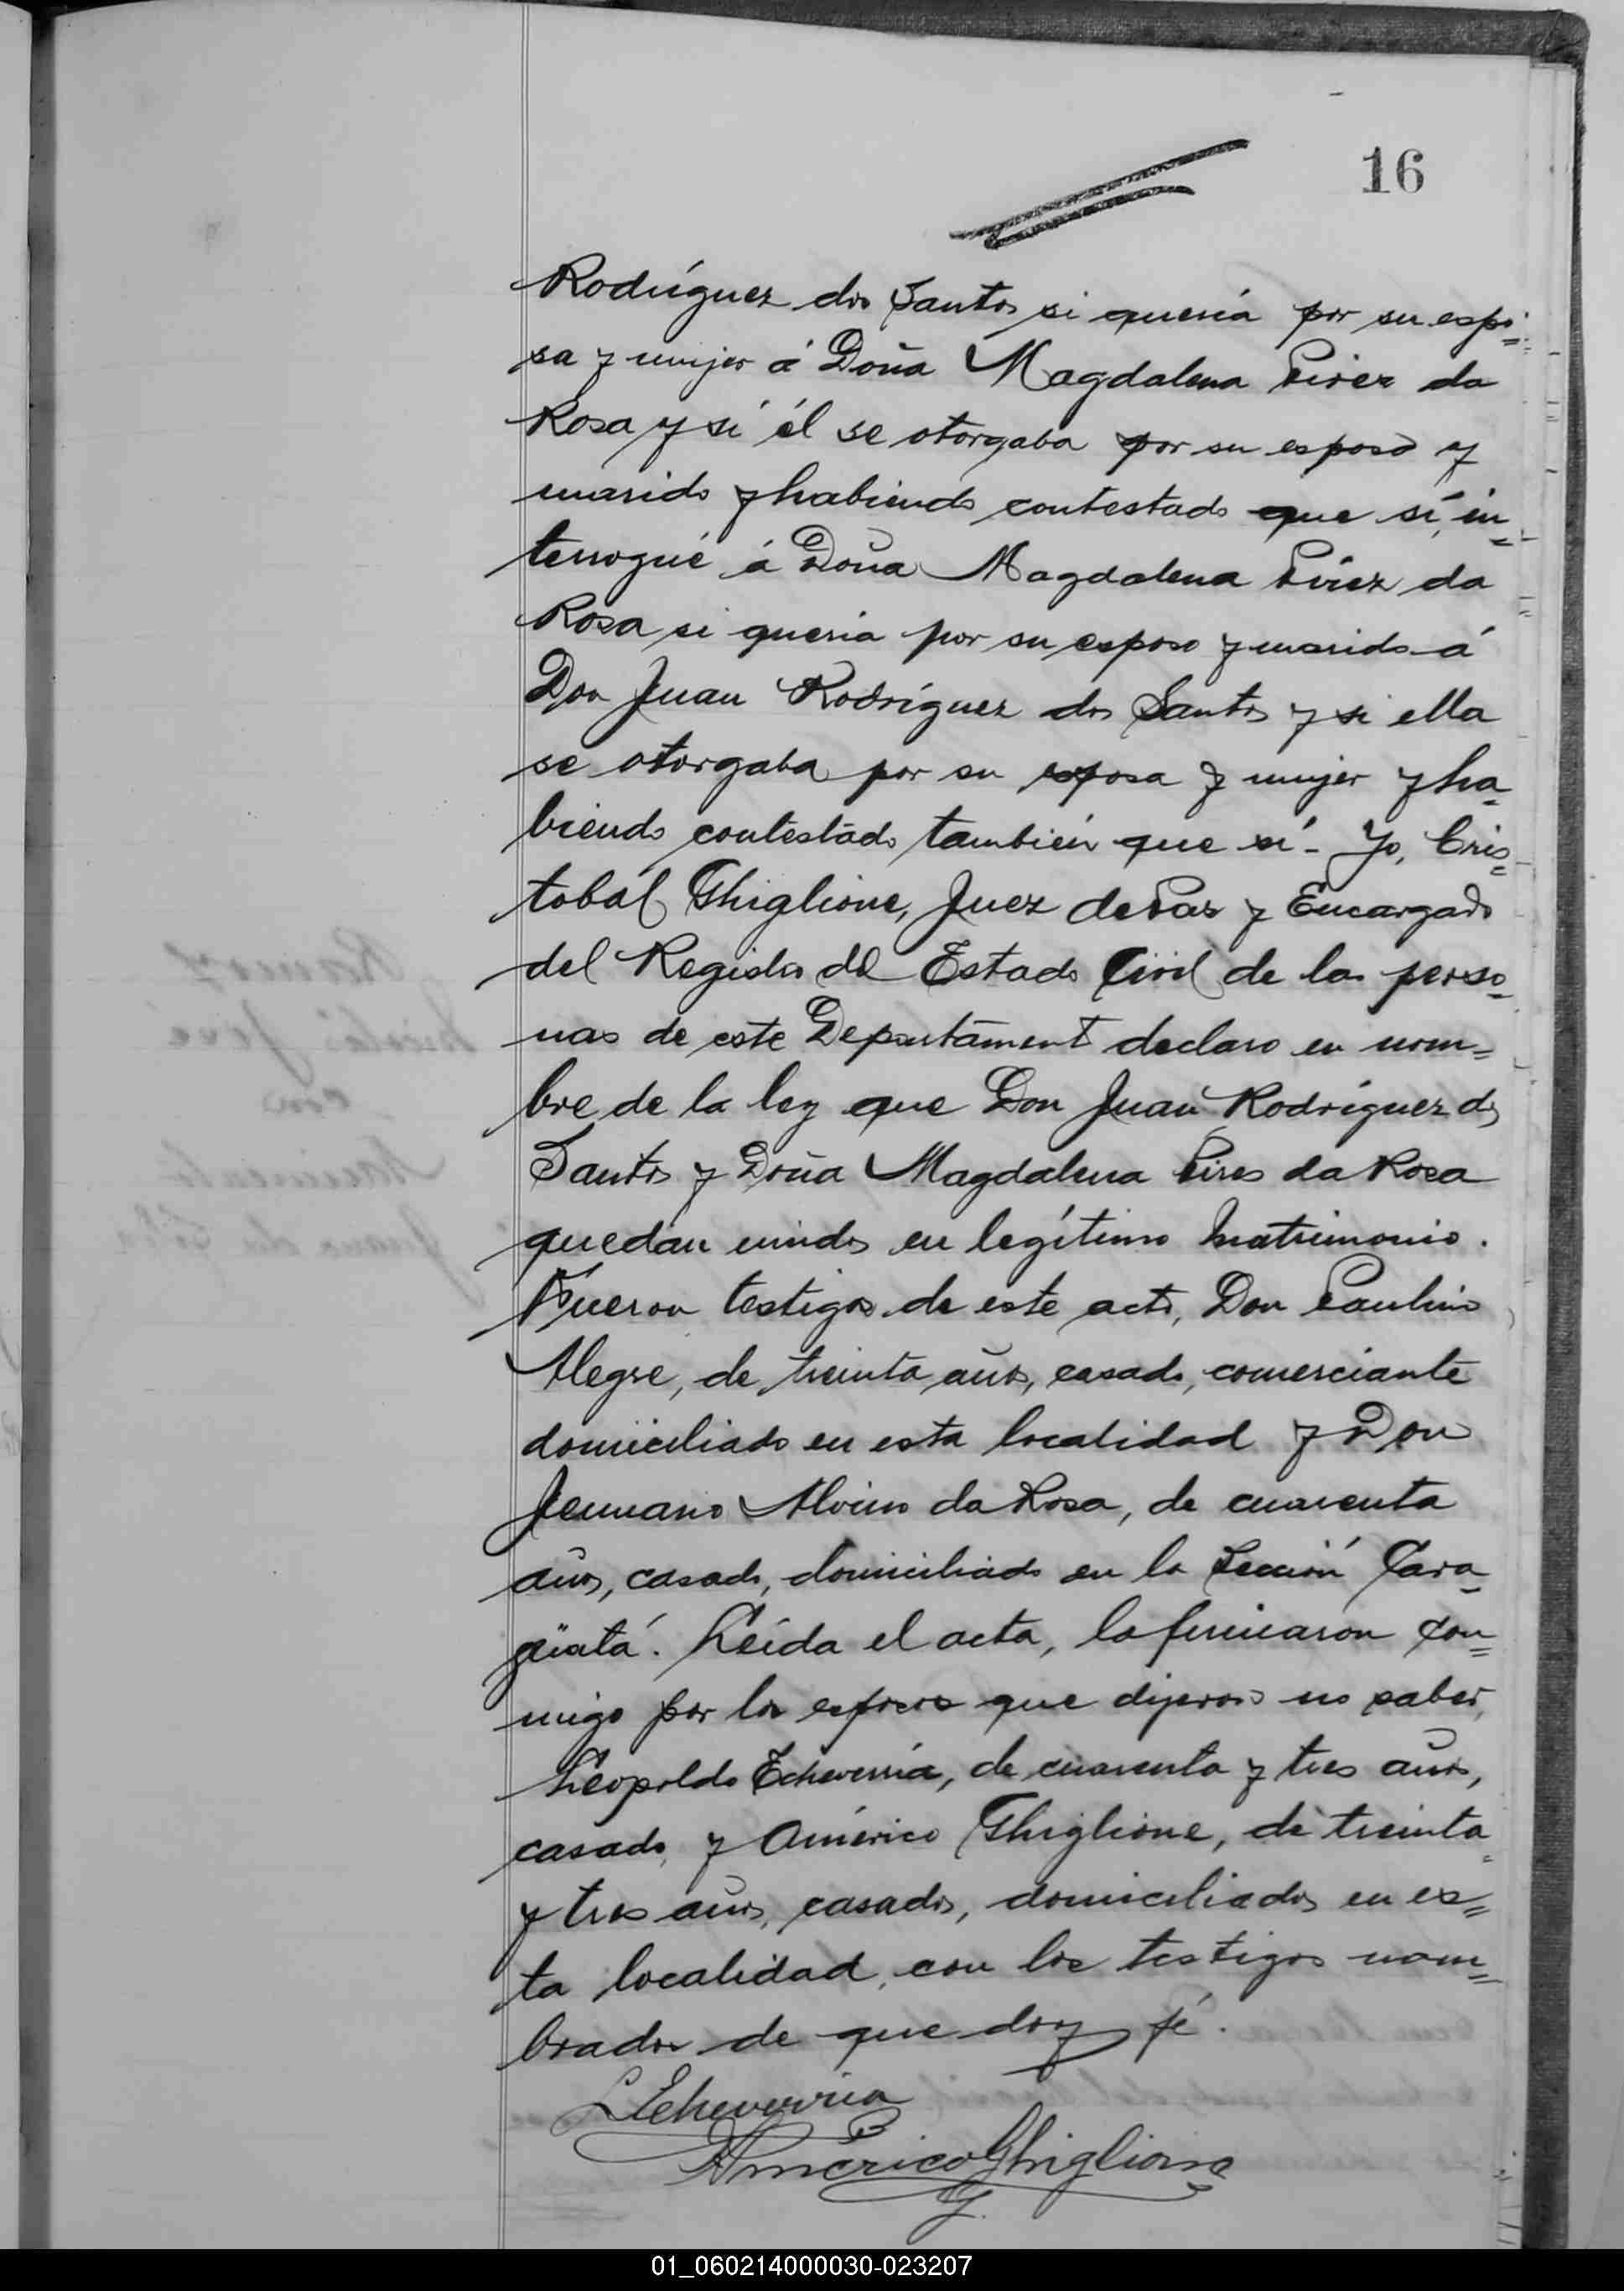 16
Rodríguez dos Santos si quería por su espo=
sa y mujer á Doña Magdalena Pirez da
Rosa y si él se otorgaba por su esposo y
marido y habiendo contestado que sí, in=
terrogué á Doña Magdalena Pirez da
Rosa si quería por su esposo y marido á
Don Juan Rodríguez dos Santos y si ella
se otorgaba por su esposa y mujer y ha=
biendo contestado también que sí - Yo, Cris=
tobal Ghiglione, Juez de Paz y Encargado
del Registro del Estado Civil de las perso=
nas de este Departamento declaro en nom=
bre de la ley que Don Juan Rodríguez dos
Santos y Doña Magdalena Pires da Rosa
quedan unidos en legítimo matrimonio.
Fueron testigos de este acto, Don Paulino
Alegre, de treinta años, casado, comerciante
domiciliado en esta localidad y Don
da Rosa, de cuarenta
años, casado, domiciliado en la Sección Cara=
güatá. Leída el acta, la firmaron con=
migo por los esposos que dijeron no saber,
Leopoldo Echeverría, de cuarenta y tres años,
casado, y Américo Ghiglione, de treinta
y tres años, casados, domiciliados en es=
ta localidad, con los testigos nom=
brados de que doy fé.
L Echeverria
Américo Ghiglione
01_060214000030-023207